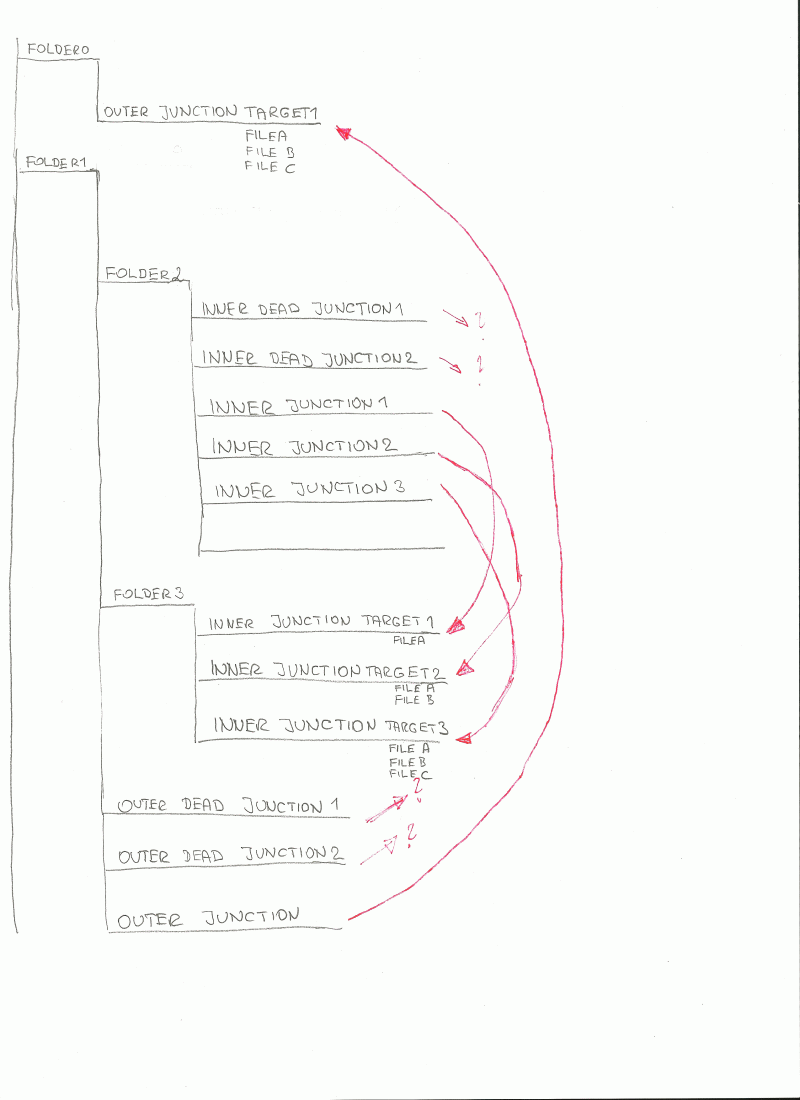 FOLDER0
OUTER JUNCTION TARGET1
FILEA
FILE B
FILE C
FOLDER1
FOLDER2
INNER DEAD JUNCTION1
?
INNER DEAD JUNCTION2
?
INNER JUNCTION1
INNER JUNCTION2
INNER JUNCTION3
FOLDER3
INNER JUNCTION TARGET1
FILEA
INNER JUNCTION TARGET2
FILE A
FILE B
INNER JUNCTION TARGET3
FILE A
FILE B
FILE C
OUTER DEAD JUNCTION1
?
OUTER DEAD JUNCTION2
?
OUTER JUNCTION